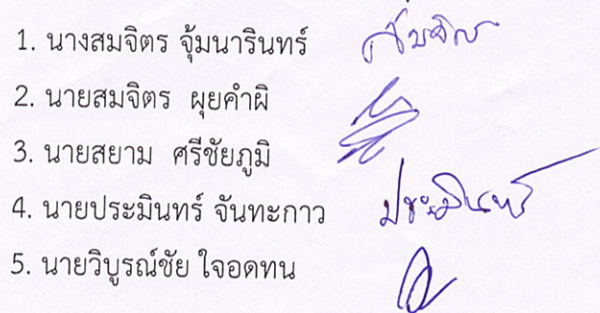 1. นางสมจิตร จุ้มนารินทร์ สมจิตร
2. นายสมจิตร ผุยคำผิ
3. นายสยาม ศรีชัยภูมิ
4. นายประมินทร์ จันทะกาว ประมินทร์
5. นายวิบูรณ์ชัย ใจอดทน